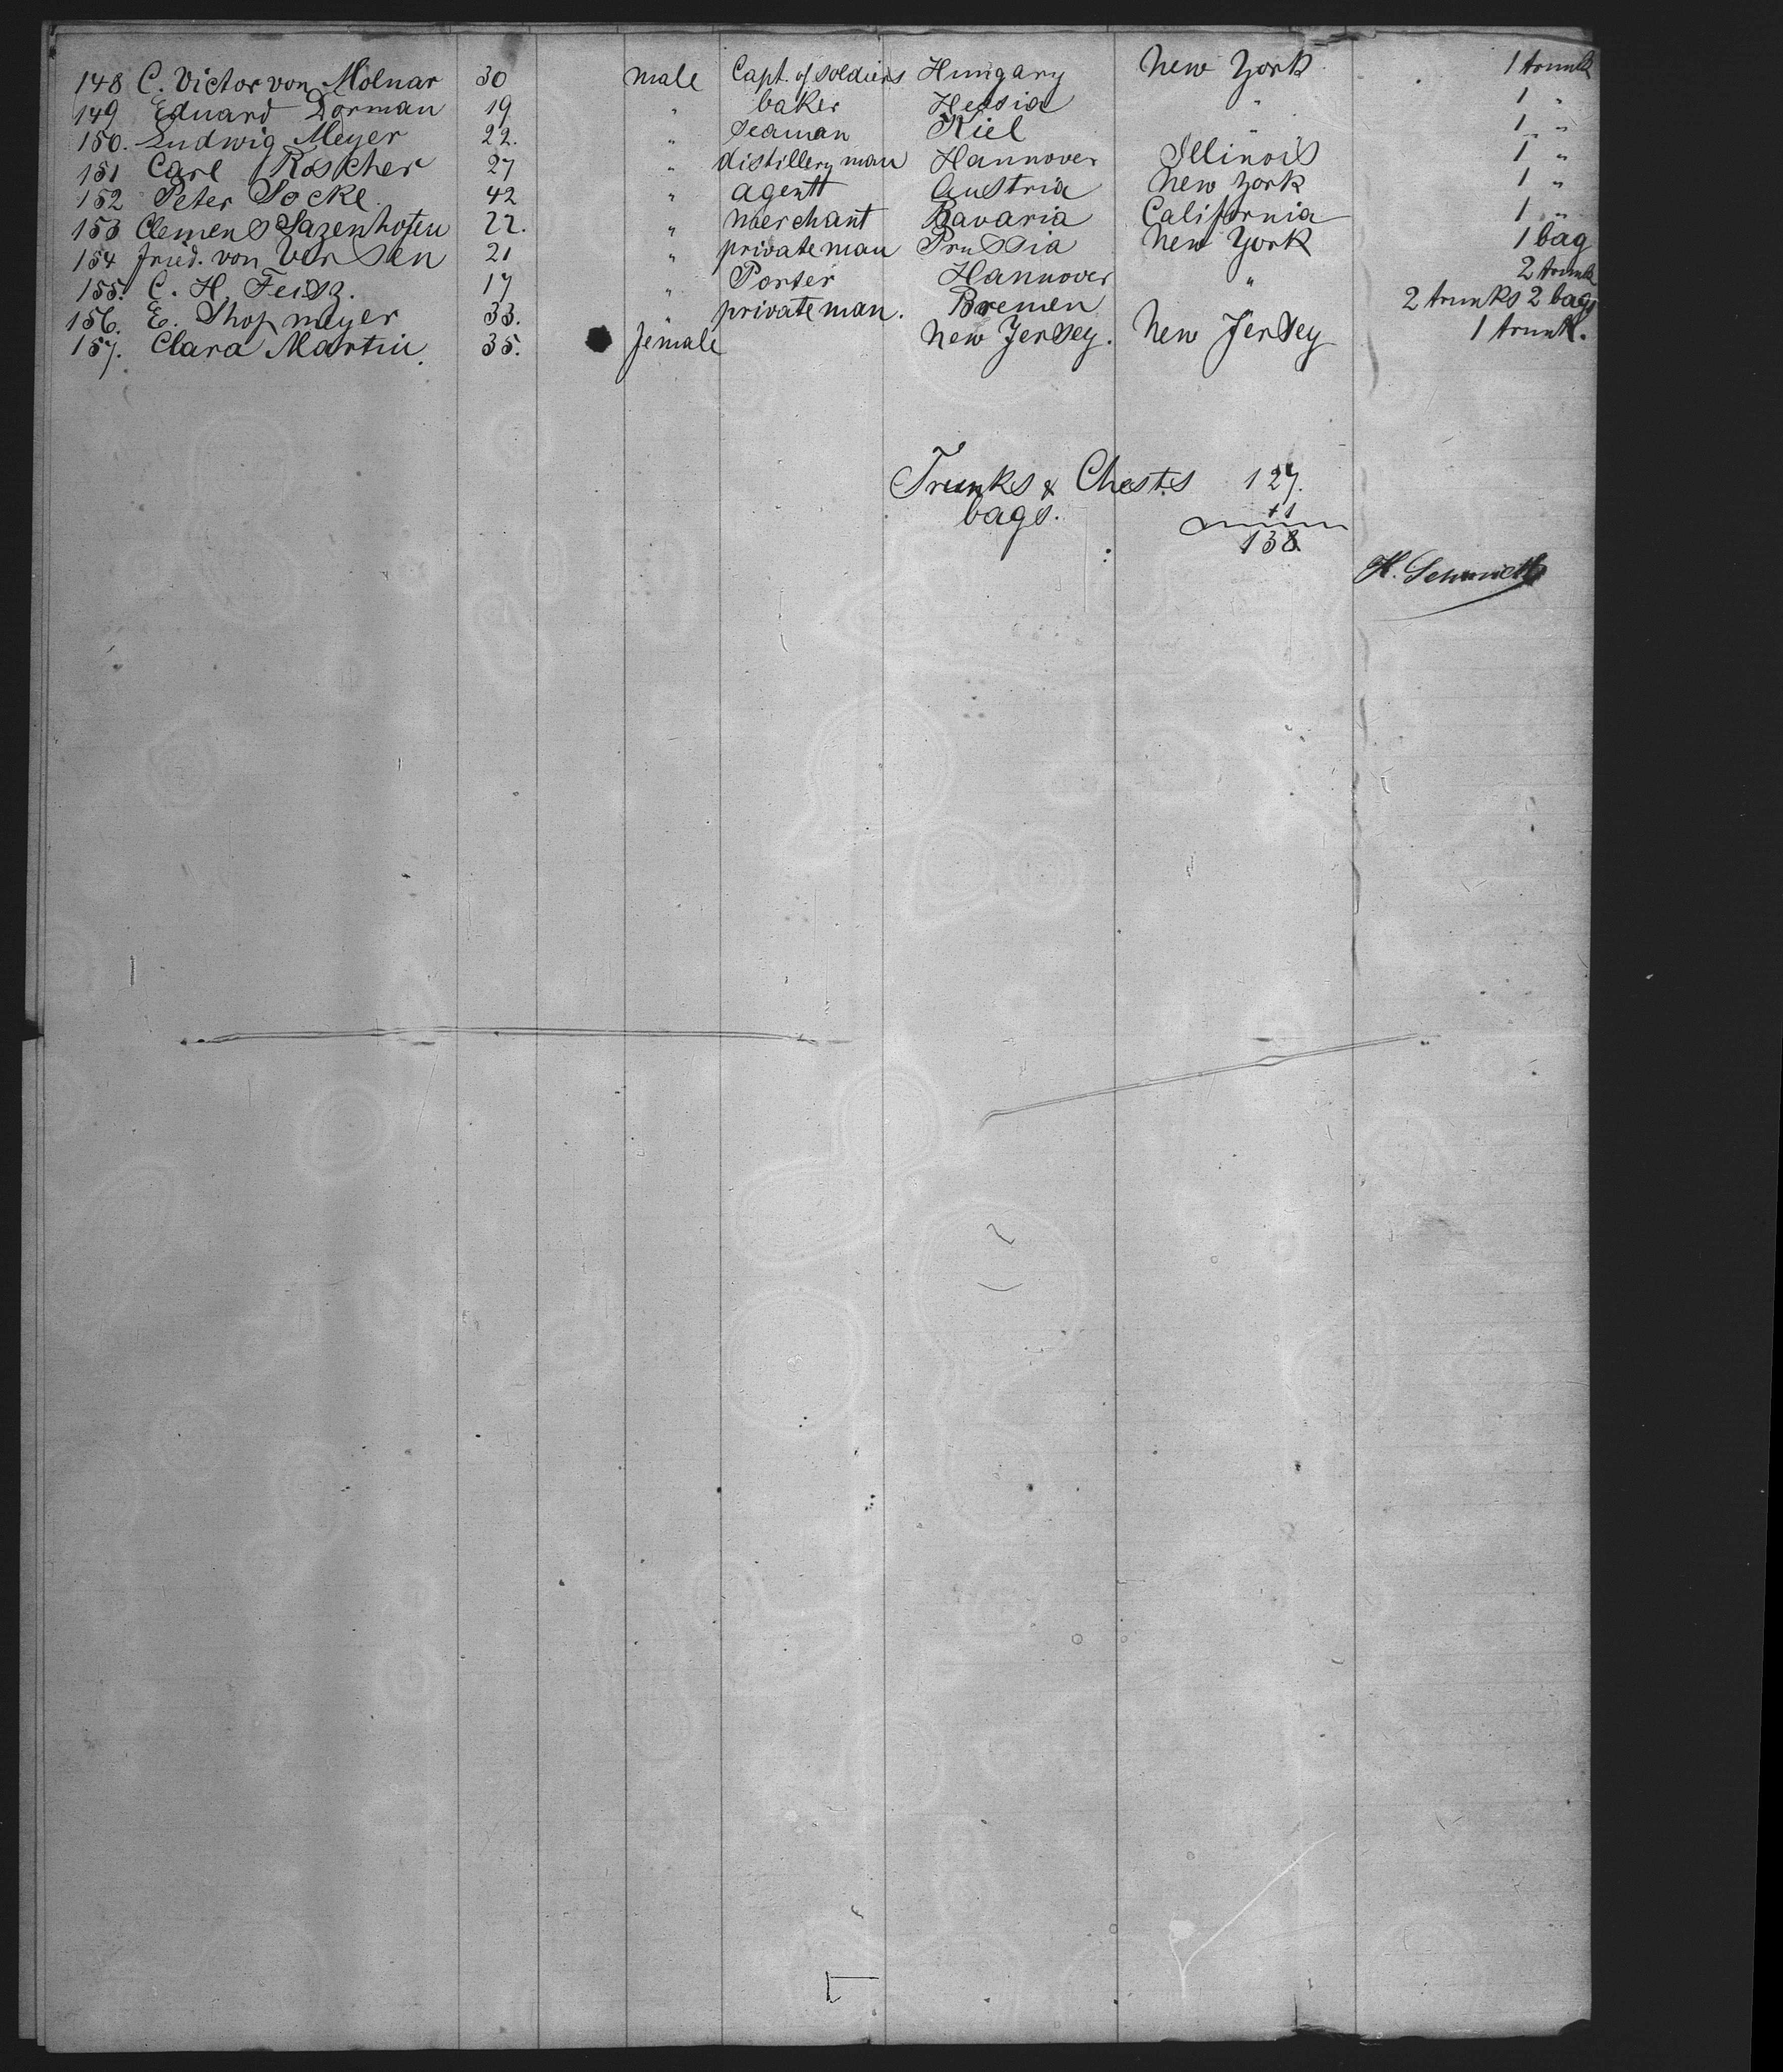 148 C. Victor von Molnar 30 male Capt. of soldiers Hungary New York 1 trunk
149 Eduard Dorman 19 " baker Hessia " 1 "
150. Ludwig Meyer 22. " seaman Kiel " 1 "
151 Carl Roscher 27 " distillery man Hannover Illinois 1 "
152 Peter Socke 42 " agentt Austria New York 1 "
153 Clemens Sazenhofen 22. " merchant Bavaria California 1 "
154 Fried. von Versen 21 " private man Prussia New York 1 bag
155. C. H. 17 " Porter Hannover " 2 trunk
156. E. 33. " private man. Bremen 2 trunks 2 bags
157. Clara Martin. 35. female New Jersey. New Jersey 1 trunk.
Trunks & Chests 127.
bags. 11
138
H.